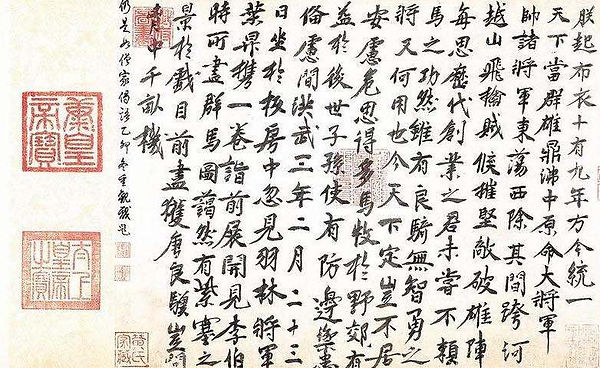 朕起布衣十有九年方今統一
天下當群雄鼎沸中原命大將軍
帥諸將軍東蕩西除其間跨河
越山飛擒賊候摧堅敵破雄陣
每思歷代創業之君未嘗不賴
馬之功然雖有良騎無智勇之
將又何用也今天下定豈不居
安慮危思得多馬牧於野郊有
益於後世子孫使有防邊禦患
俻慮間洪武三年二月二十三
日坐於板房中忽見羽林將軍
葉昇携一卷詣前展開見李伯
時所畫群馬圖藹然有紫塞之
景於戲目前盡獲唐良驥豈問
胷中千畝機
仍是如僧家偈語乙卯冬重觀戲題
太上皇帝之寶